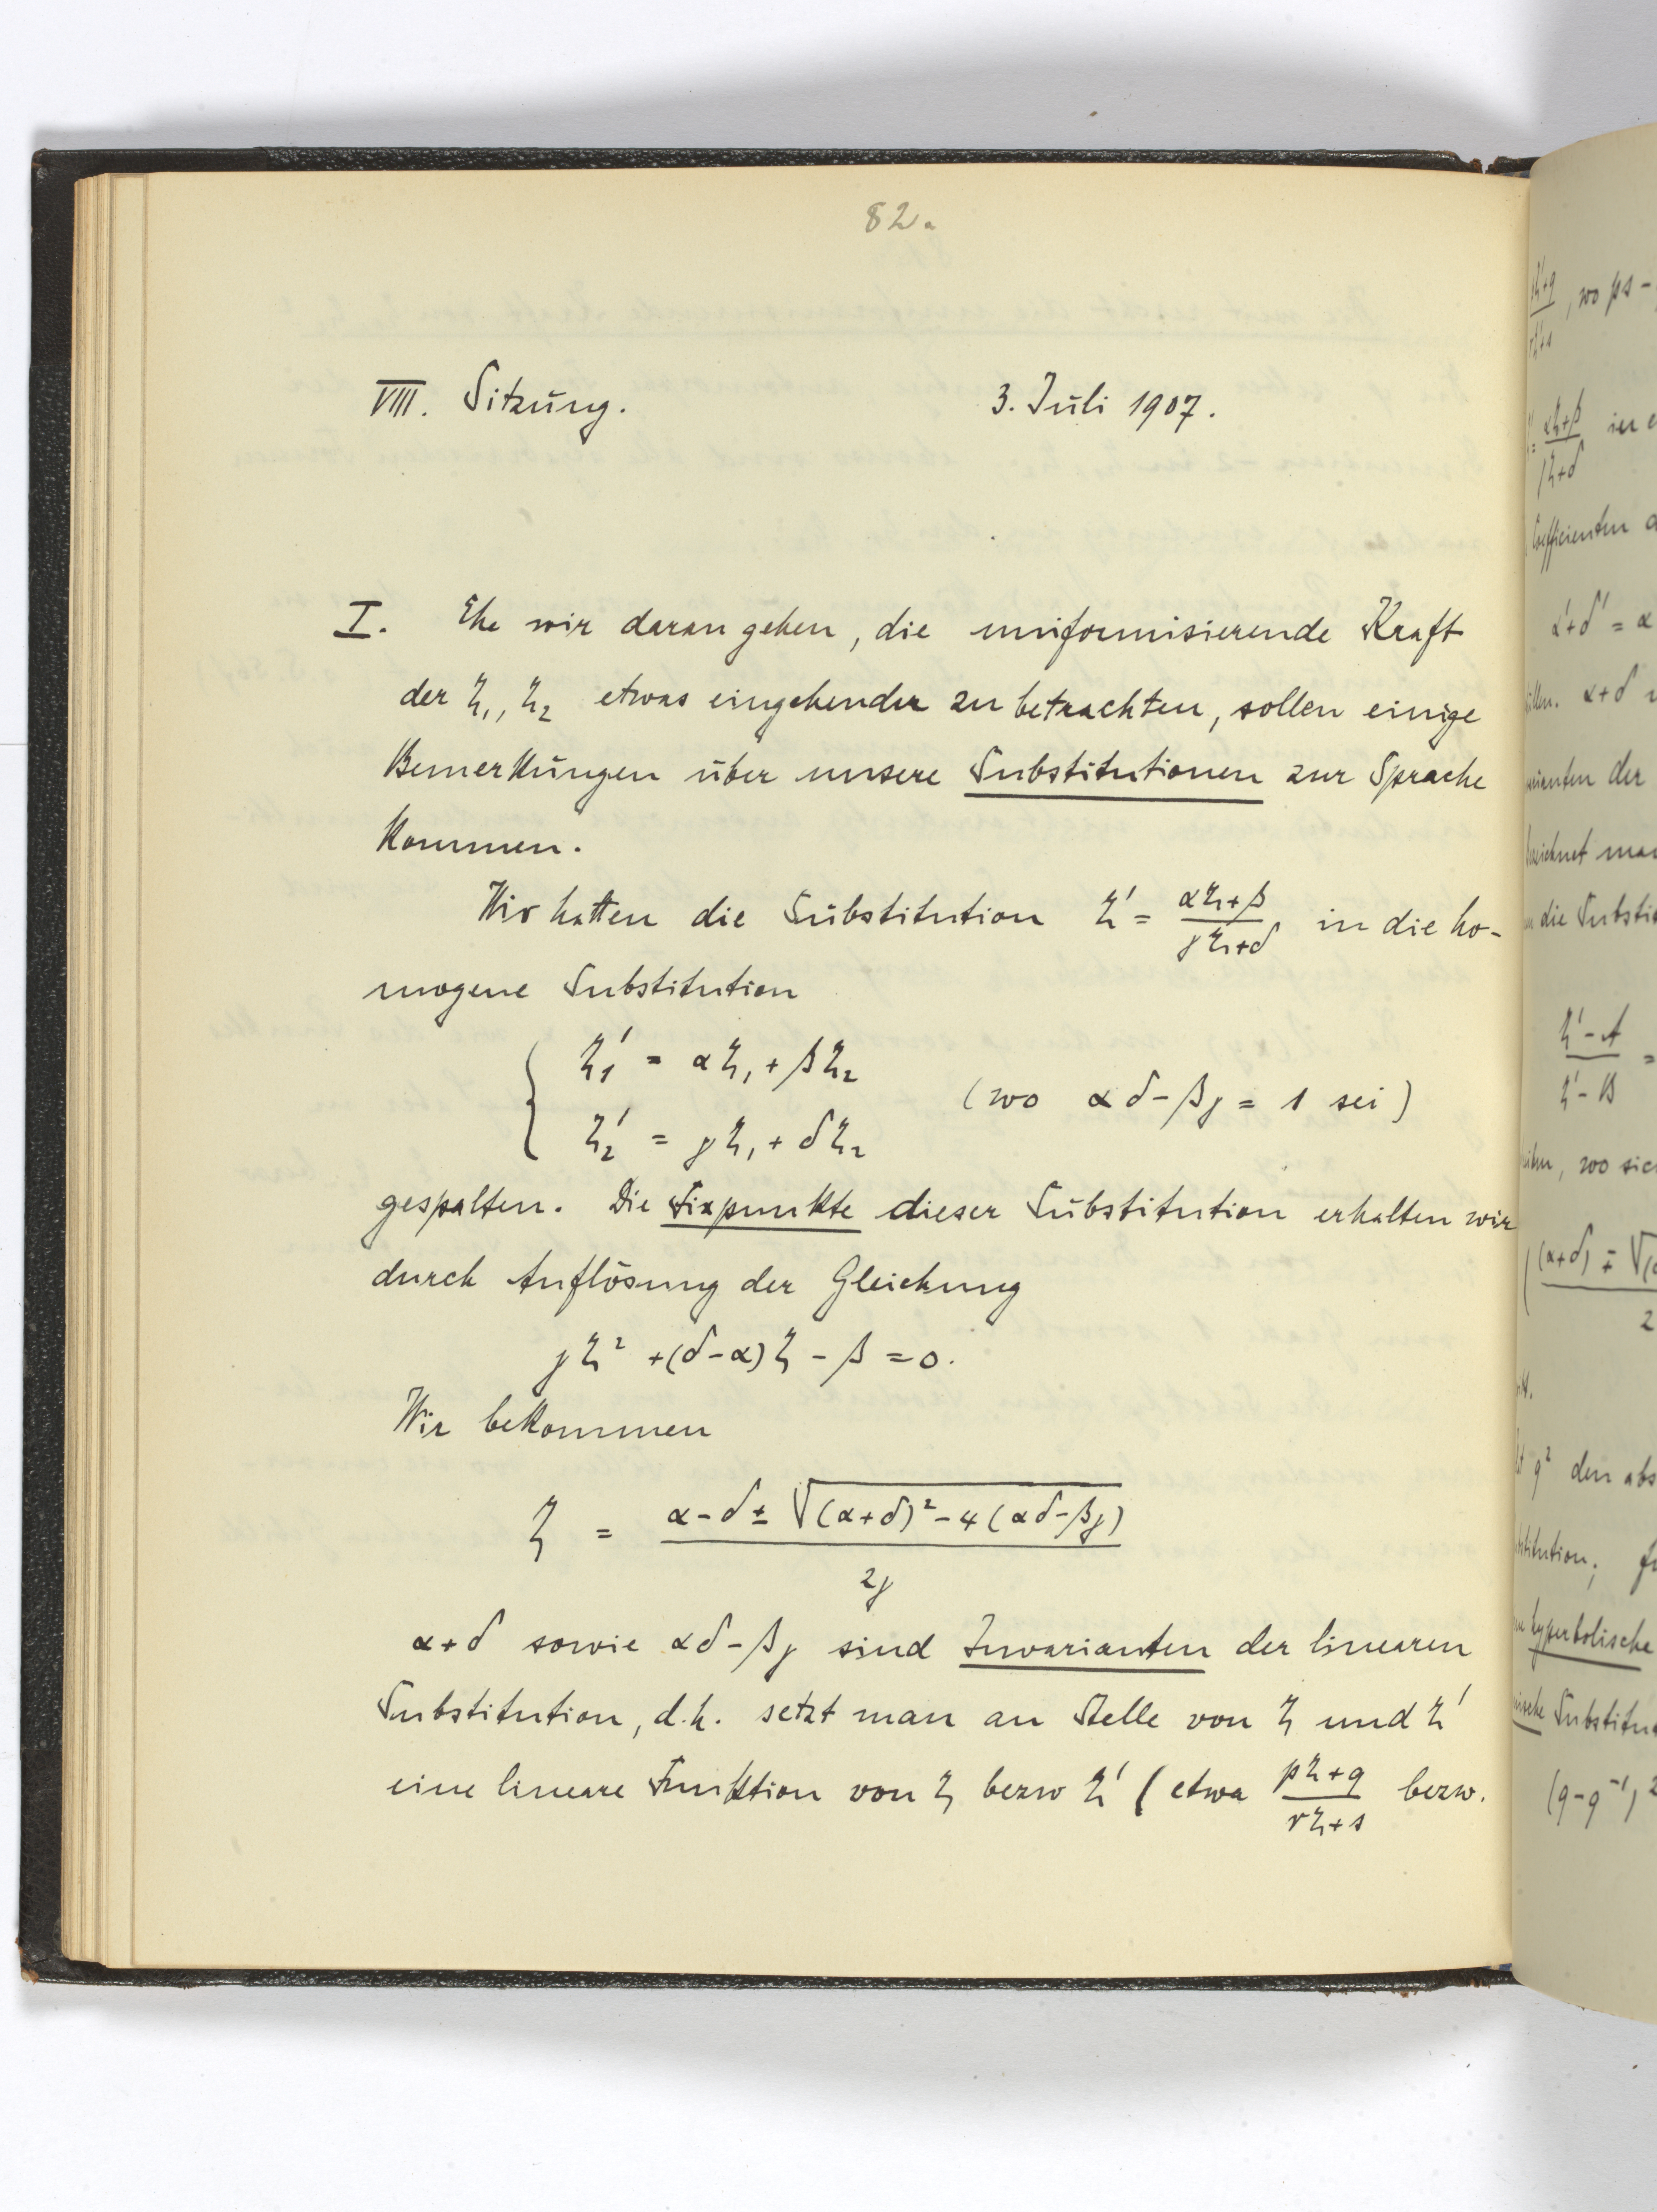 82.
VIII. Sitzung. 3. Juli 1907.
I. Ehe wir daran gehen, die uniformisierende Kraft
der ζ₁, ζ₂ etwas eingehender zu betrachten, sollen einige
Bemerkungen über unsere Substitutionen zur Sprache
kommen.
Wir hatten die Substitution ζ' = (αζ+β)/(γζ+δ) in die ho-
mogene Substitution
ζ₁' = αζ₁ + βζ₂
(wo αδ-βγ = 1 sei)
ζ₂' = γζ₁ + δζ₂
gespalten. Die Fixpunkte dieser Substitution erhalten wir
durch Auflösung der Gleichung
γζ² + (δ-α)ζ - β = 0.
Wir bekommen
ζ = (α-δ ± √((α+δ)² - 4(αδ-βγ)))/2γ
α+δ sowie αδ-βγ sind Invarianten der linearen
Substitution, d.h. setzt man an Stelle von ζ und ζ'
eine lineare Funktion von ζ bezw ζ' (etwa (pζ+q)/(rζ+s) bezw.
, wo ps-
αζ+β
γζ+δ
Coefficienten
α'+δ' = α
α+δ
der
die Substit
ζ'-A
ζ'-B
=
, wo sic
(α+δ) ∓ √
2
q² den abs
hyperbolische
Substitu
(q-q⁻¹)²